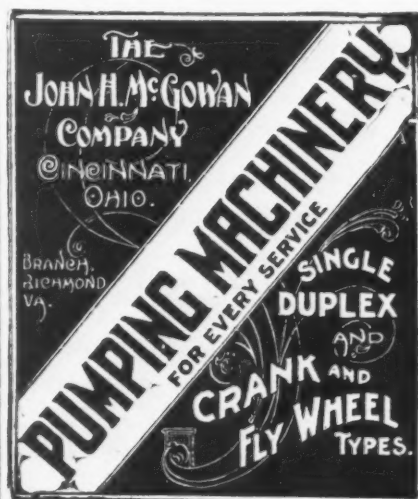 THE
JOHN H. McGOWAN
COMPANY
CINCINNATI,
OHIO.
BRANCH.
RICHMOND
VA.
PUMPING MACHINERY
FOR EVERY SERVICE
SINGLE
DUPLEX
AND
CRANK AND
FLY WHEEL
TYPES.